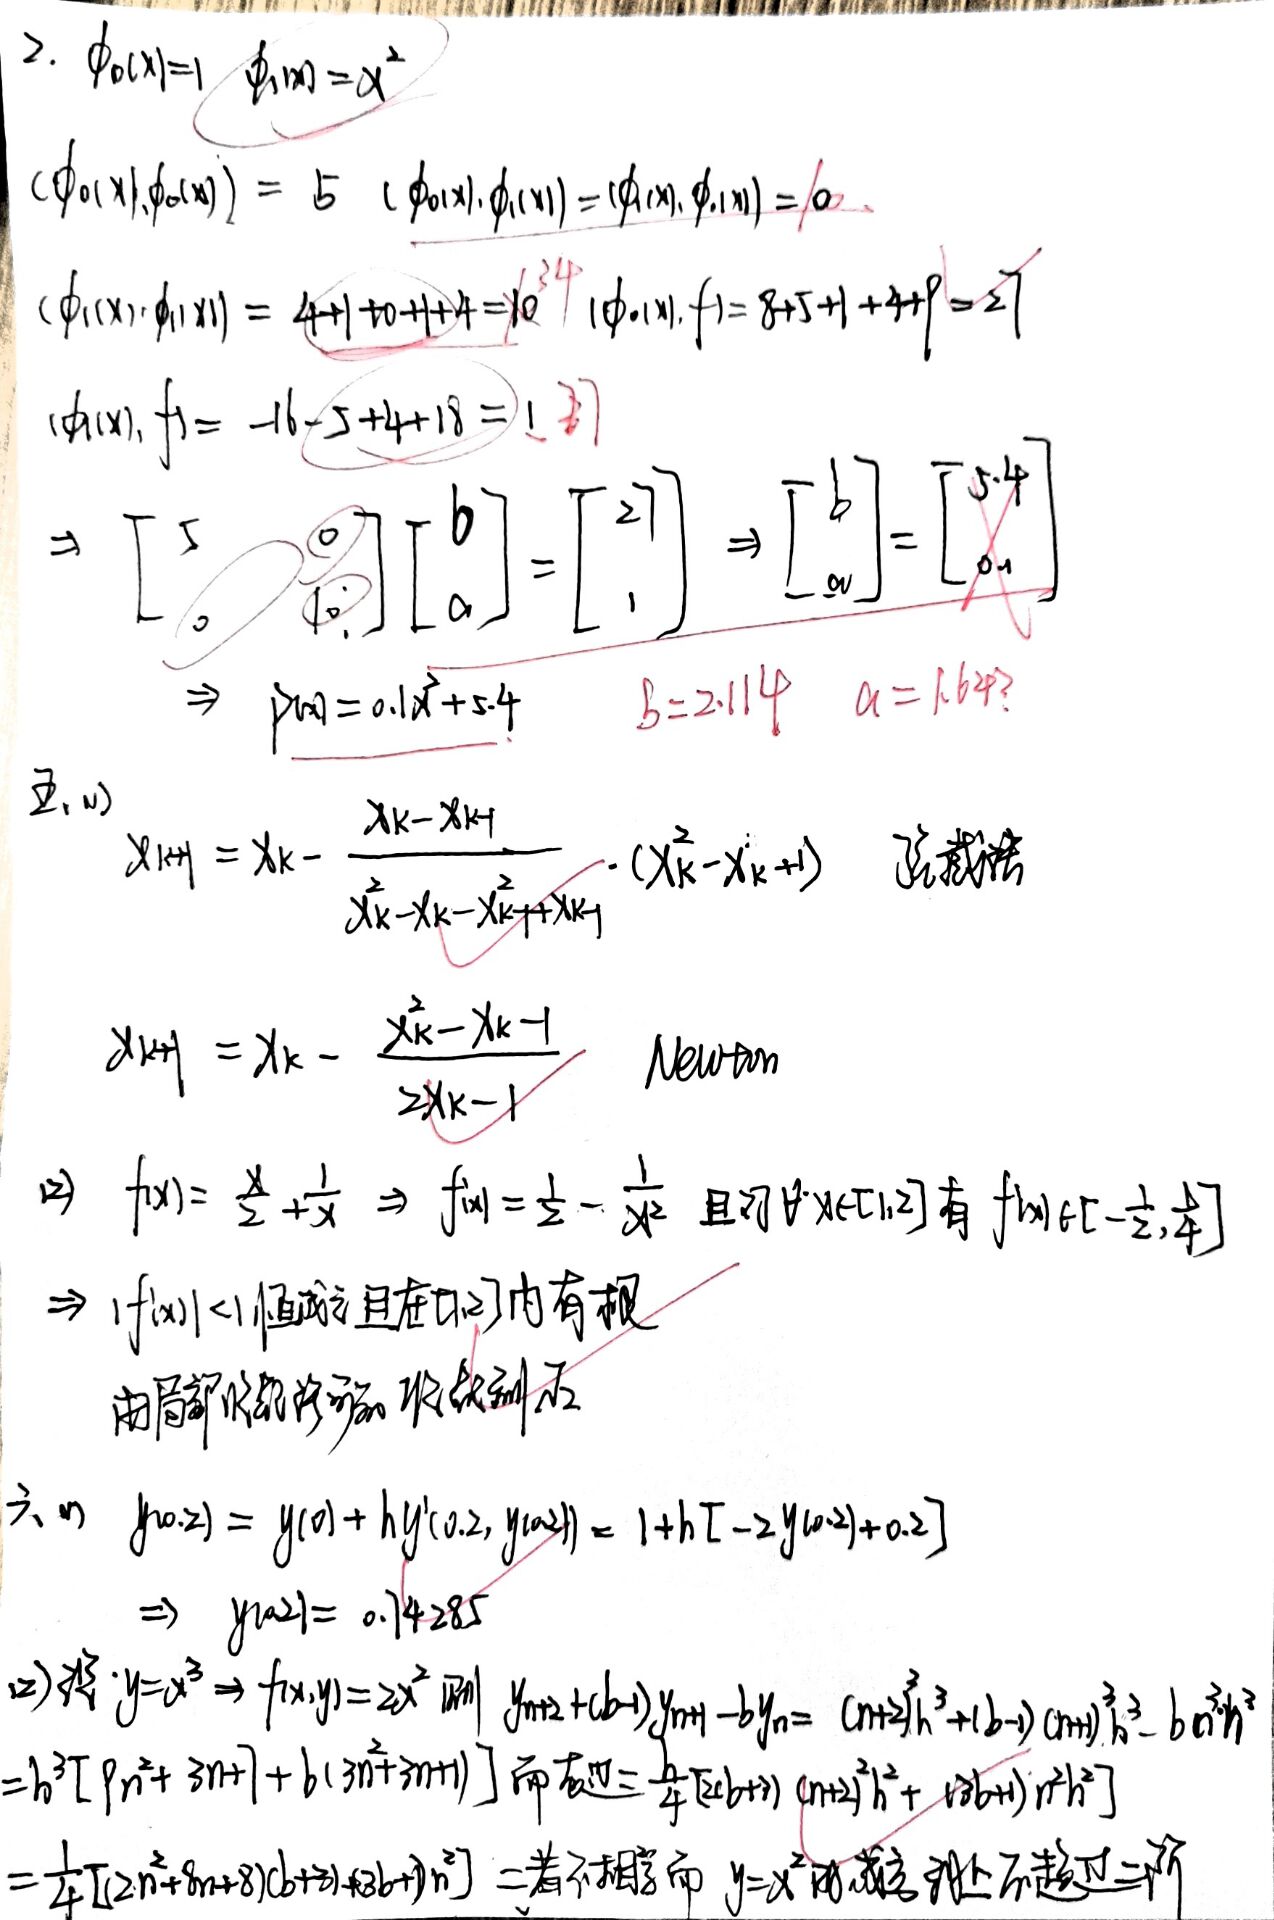 2. φ₀(x)=1 φ₁(x)=x²
(φ₀(x),φ₀(x)) = 5 (φ₀(x),φ₁(x))=(φ₁(x),φ₀(x))=0
(φ₁(x),φ₁(x)) = 4+1+0+1+4=10 34 (φ₀(x),f)=8+5+1+4+9=27
(φ₁(x),f)= -16-5+4+18=1 37
⇒ [5 0; 0 10][b; a]=[27; 1] ⇒ [b; a]=[5.4; 0.1]
⇒ p(x)=0.1x²+5.4 b=2.114 a=1.643
五.(1) x_{k+1} = x_k - (x_k-x_{k-1})/(x_k²-x_k-x_{k-1}²+x_{k-1}) ·(x_k²-x_k+1) 弦截法
x_{k+1} = x_k - (x_k²-x_k-1)/(2x_k-1) Newton
(2) f(x)= x/2+1/x ⇒ f'(x)=1/2-1/x² 且对∀x∈[1,2]有 f'(x)∈[-1/2,1/4]
⇒ |f'(x)|<1恒成立且在[1,2]内有根
由局部收敛 收敛到√2
六、(1) y(0.2) = y(0)+hy'(0.2, y(0.2)) = 1+h[-2y(0.2)+0.2]
⇒ y(0.2)= 0.74285
(2) y=x³ ⇒ f(x,y)=2x² 则 y_{n+2}+(b-1)y_{n+1}-by_n= (n+2)³h³+(b-1)(n+1)³h³-bn³h³
=h³[9n²+3n+7+b(3n²+3n+1)] 而右边= h/4[2(b+3)(n+2)²h²+(3b+1)n²h²]
=1/4[(2n²+8n+8)(b+3)+(3b+1)n²] 二者不相等而 y=x² 成立 不超过二阶